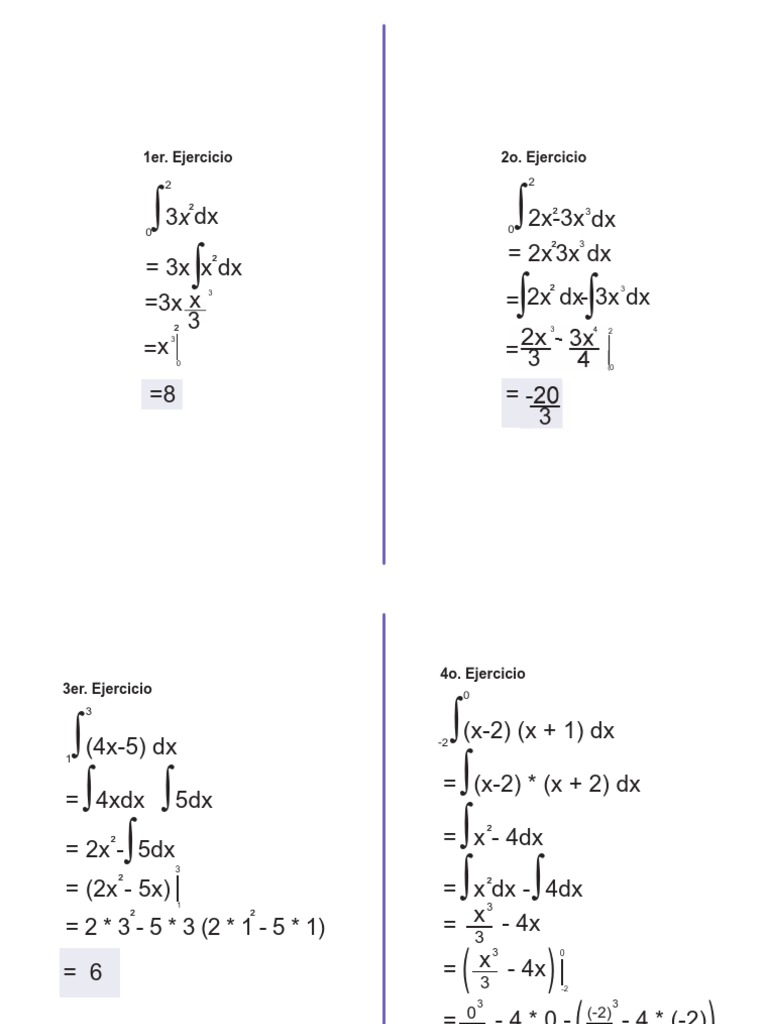 1er. Ejercicio
∫₀² 3x²dx
= 3x∫x²dx
=3x x³/3
=x³|₀²
=8
2o. Ejercicio
∫₀² 2x²-3x³dx
= 2x²3x³dx
=∫2x² dx-∫3x³dx
= 2x³/3 - 3x⁴/4 |₀²
= -20/3
3er. Ejercicio
∫₁³ (4x-5) dx
=∫4xdx ∫5dx
= 2x²-∫5dx
= (2x²- 5x)|₁³
= 2 * 3²- 5 * 3 (2 * 1²- 5 * 1)
= 6
4o. Ejercicio
∫₋₂⁰ (x-2) (x + 1) dx
=∫(x-2) * (x + 2) dx
=∫x²- 4dx
=∫x²dx -∫4dx
= x³/3 - 4x
= (x³/3 - 4x)|₋₂⁰
= 0³ - 4 * 0 - ((-2)³ - 4 * (-2))